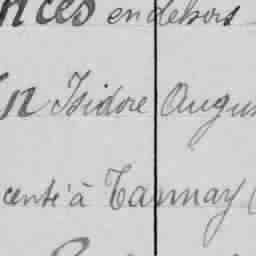 nces en dehors
n Isidore Augus
cente à Tannay (